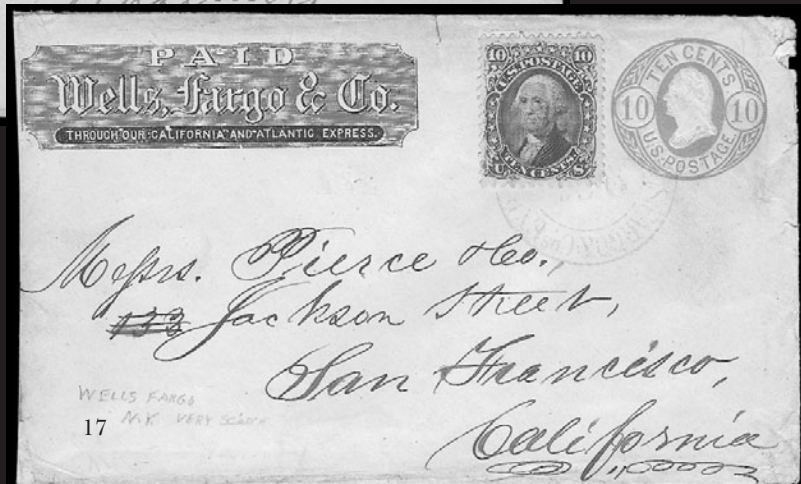 PAID
Wells, Fargo & Co.
THROUGH OUR CALIFORNIA AND ATLANTIC EXPRESS.
10 10
U.S. POSTAGE
TEN CENTS
U S
TEN CENTS
10 10
U.S. POSTAGE
Messrs. Pierce & Co.,
133 Jackson Street,
San Francisco,
California
WELLS FARGO
N.Y. VERY
17